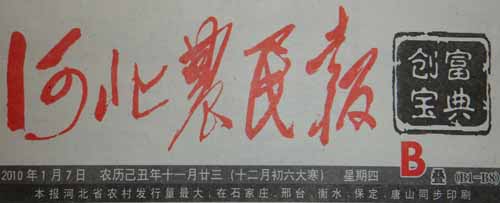 河北農民報
創富宝典
B叠(B1-B8)
2010年1月7日 农历己丑年十一月廿三(十二月初六大寒) 星期四
本报河北省农村发行量最大,在石家庄、邢台、衡水、保定、唐山同步印刷